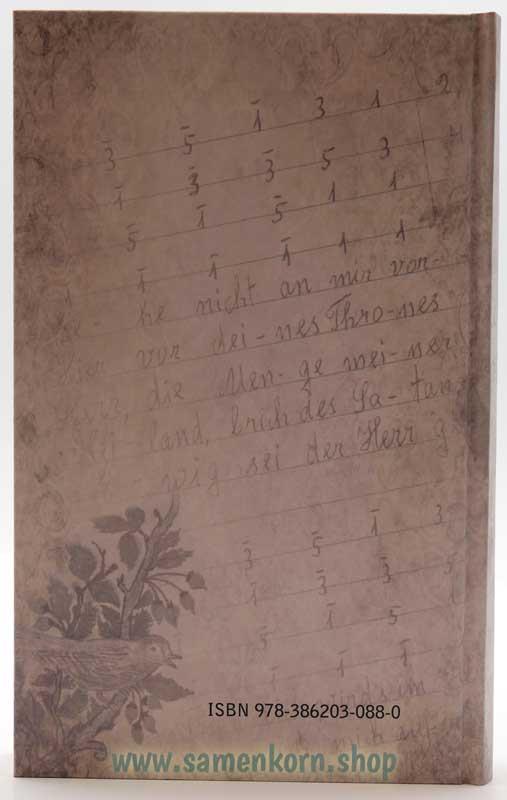 3̄ 5̄ 1̄ 3 1 2
1̄ 3̄ 3̄ 5 3
5̄ 1̄ 5̄ 1 1
1 1̄ 1̄ 1̄ 1 1
ge- he nicht an mir vor-
hier vor dei-nes Thro-nes
die Men-ge mei-ner
land, brich des Sa-tan
wig sei der Herr g
3̄ 5̄ 1̄ 3
1̄ 3̄ 3̄ 5
5̄ 1̄ 5
1̄ 1̄ 1̄
ISBN 978-386203-088-0
www.samenkorn.shop